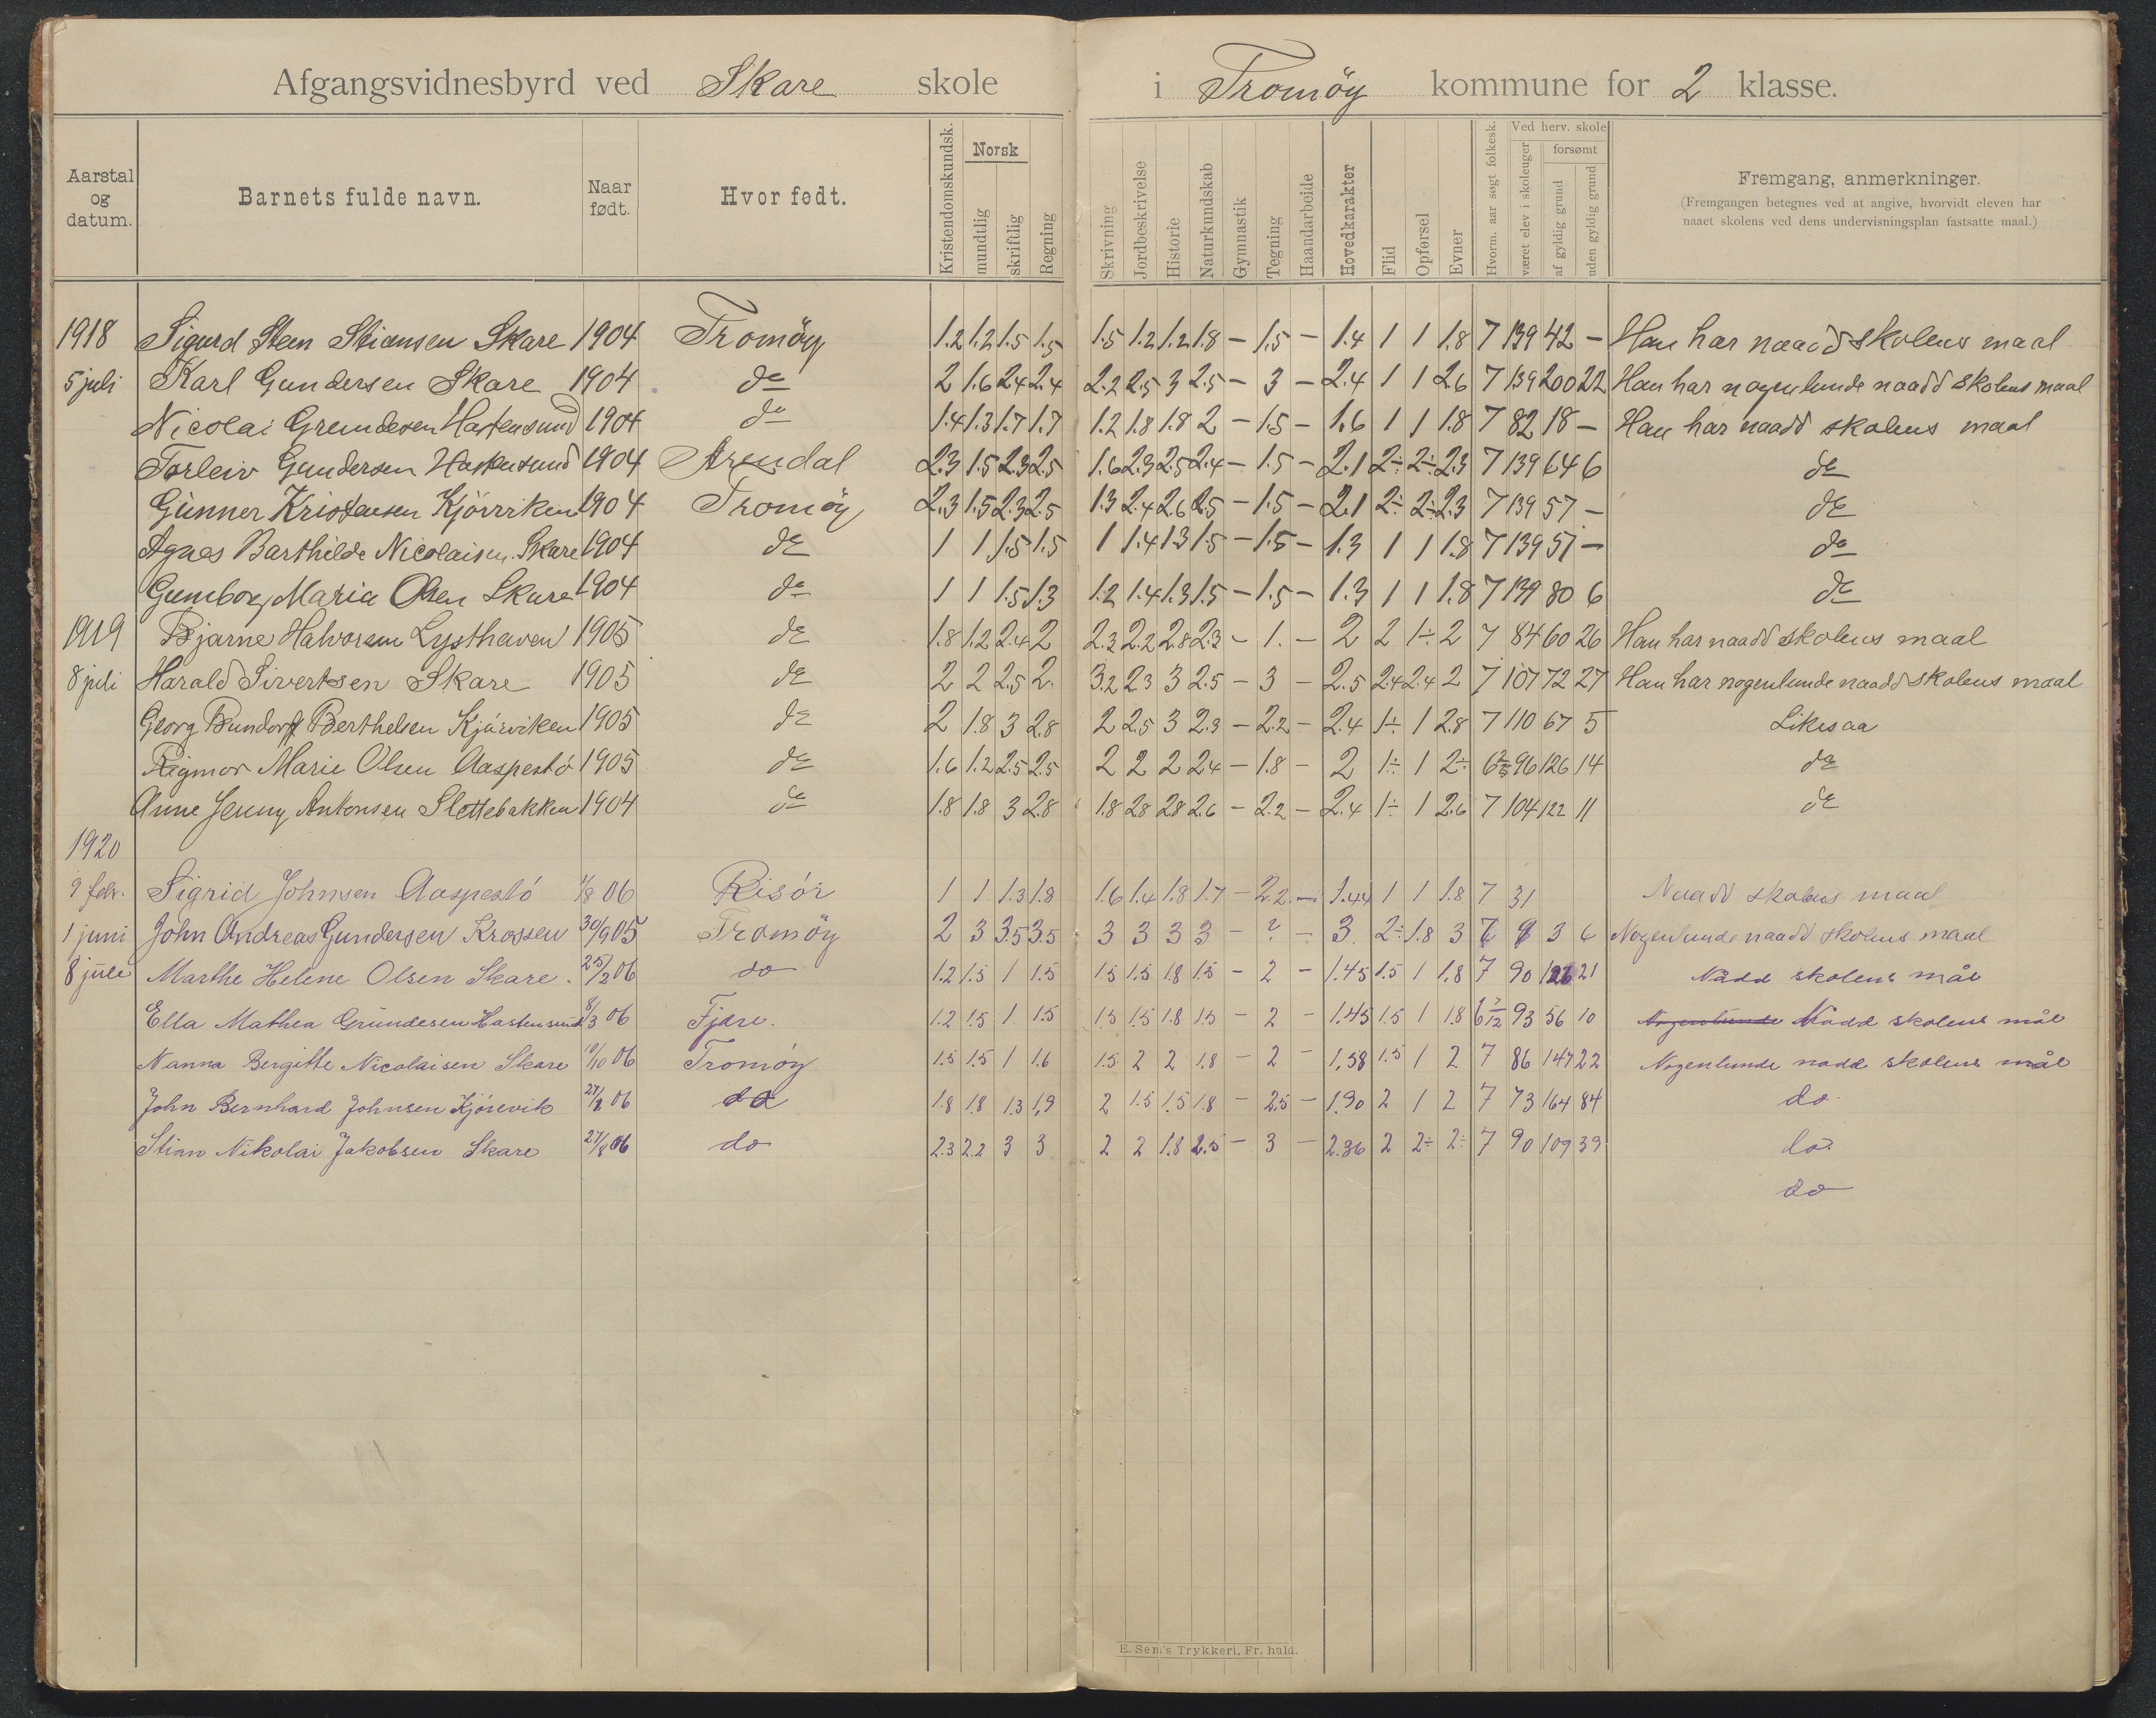 Afgangsvidnesbyrd ved Skare skole i Tromöy kommune for 2 klasse.
Aarstal og datum. Barnets fulde navn. Naar født. Hvor født. Kristendomskundsk. Norsk mundtlig skriftlig Regning Skrivning Jordbeskrivelse Historie Naturkundskab Gymnastik Tegning Haandarbeide Hovedkarakter Flid Opførsel Evner Hvorm. aar søgt folkesk. Ved herv. skole været elev i skoleuger forsømt af gyldig grund uden gyldig grund Fremgang, anmerkninger.
(Fremgangen betegnes ved at angive, hvorvidt eleven har
naaet skolens ved dens undervisningsplan fastsatte maal.)
1918 Sigurd Sten Stiansen Skare 1904 Tromöy 1.2 1.2 1.5 1.5 1.5 1.2 1.2 1.8 – 1.5 – 1.4 1 1 1.8 7 139 42 – Han har naadd skolens maal
5 juli Karl Gundersen Skare 1904 do 2 1.6 2.4 2.4 2.2 2.5 3 2.5 – 3 – 2.4 1 1 2.6 7 139 200 22 Han har nogenlunde naadd skolens maal
Nicolai Grundesen Hastensund 1904 do 1.4 1.3 1.7 1.7 1.2 1.8 1.8 2 – 1.5 – 1.6 1 1 1.8 7 82 18 – Han har naadd skolens maal
Torleiv Gundersen Hastensund 1904 Arendal 2.3 1.5 2.3 2.5 1.6 2.3 2.5 2.4 – 1.5 – 2.1 2÷ 2÷ 2.3 7 139 64 6 do
Gunner Kristensen Kjörviken 1904 Tromöy 2.3 1.5 2.3 2.5 1.3 2.4 2.6 2.5 – 1.5 – 2.1 2÷ 2÷ 2.3 7 139 57 – do
Agnes Barthilde Nicolaisen Skare 1904 do 1 1 1.5 1.5 1 1.4 1.3 1.5 – 1.5 – 1.3 1 1 1.8 7 139 57 – do
Gunborg Maria Olsen Skare 1904 do 1 1 1.5 1.3 1.2 1.4 1.3 1.5 – 1.5 – 1.3 1 1 1.8 7 139 80 6 do
1919 Bjarne Halvorsen Lysthaven 1905 do 1.8 1.2 2.4 2 2.3 2.2 2.8 2.3 – 1. – 2 2 1÷ 2 7 84 60 26 Han har naadd skolens maal
8 juli Harald Sivertsen Skare 1905 do 2 2 2.5 2. 3.2 2.3 3 2.5 – 3 – 2.5 2.4 2.4 2 7 107 72 27 Han har nogenlunde naadd skolens maal
Georg Bundorff Berthelsen Kjörviken 1905 do 2 1.8 3 2.8 2 2.5 3 2.3 – 2.2 – 2.4 1÷ 1 2.8 7 110 67 5 Likesaa
Rigmor Marie Olsen Aaspestö 1905 do 1.6 1.2 2.5 2.5 2 2 2 2.4 – 1.8 – 2 1÷ 1 2÷ 96 126 14 do
Anne Jenny Antonsen Slettebakken 1904 do 1.8 1.8 3 2.8 1.8 2.8 2.8 2.6 – 2.2 – 2.4 1÷ 1 2.6 7 104 122 11 do
1920
9 febr. Sigrid Johnsen Aaspestö 1/8 06 Risör 1 1 1.3 1.8 1.6 1.4 1.8 1.7 – 2.2 – 1.44 1 1 1.8 7 31 Naadd skolens maal
1 juni John Andreas Gundersen Krossen 30/9 05 Tromöy 2 3 3.5 3.5 3 3 3 3 – ? – 3. 2÷ 1.8 3 3 6 Nogenlunde naadd skolens maal
8 jüli Marthe Helene Olsen Skare. 25/2 06 do 1.2 1.5 1 1.5 1.5 1.5 1.8 1.5 – 2 – 1.45 1.5 1 1.8 7 90 126 21 Nådd skolens mål
Ella Mathea Gründesen Hastensund 8/3 06 Fjære. 1.2 1.5 1 1.5 1.5 1.5 1.8 1.5 – 2 – 1.45 1.5 1 1.8 93 56 10 Nogenlunde Nådd skolens mål
Nanna Bergitte Nicolaisen Skare 10/10 06 Tromöy 1.5 1.5 1 1.6 1.5 2 2 1.8 – 2 – 1,58 1.5 1 2 7 86 147 22 Nogenlunde nådd skolens mål
John Bernhard Johnsen Kjörevik 27/2 06 do 1.8 1.8 1.3 1,9 2 1.5 1.5 1.8 – 2.5 – 1.90 2 1 2 7 73 164 84 do
Stian Nikolai Jakobsen Skare 27/8 06 do 2.3 2.2 3 3 2 2 1.8 2.5 – 3 – 2.36 2 2÷ 2÷ 7 90 109 39 do
do
E. Sem's Trykkeri, Fr. hald.